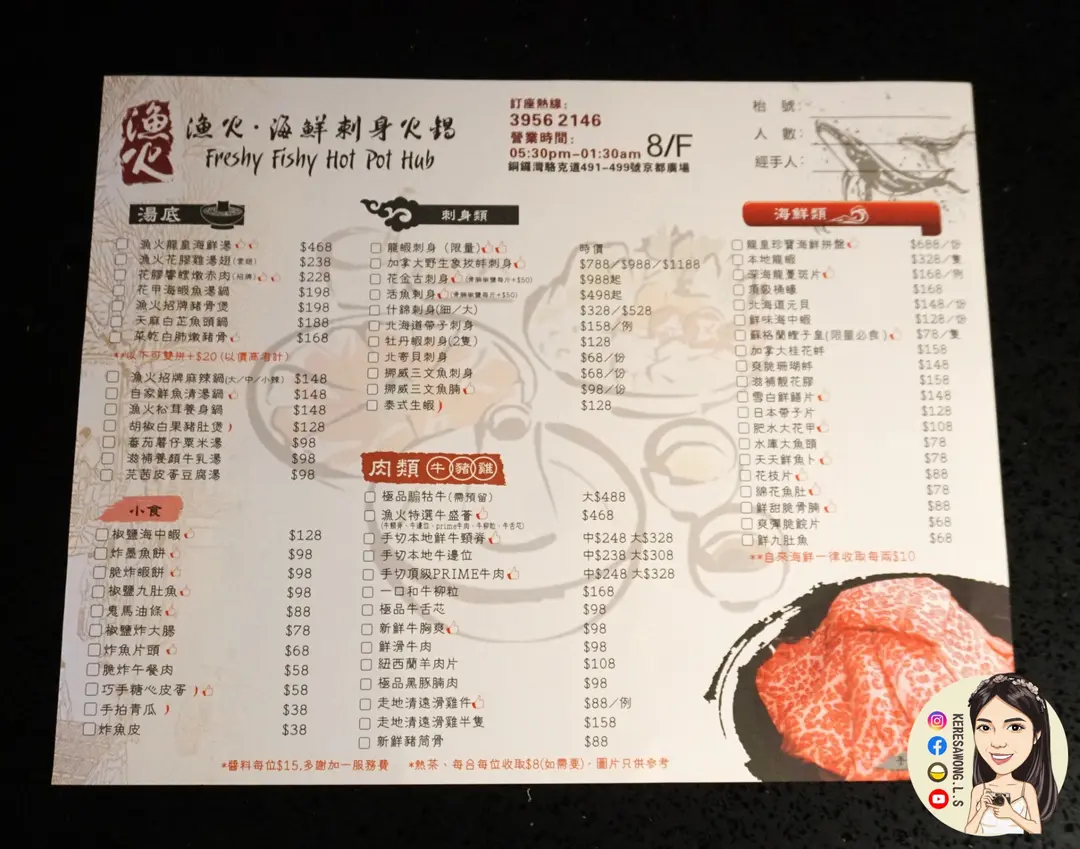 漁火
漁火·海鮮刺身火鍋
Freshy Fishy Hot Pot Hub
訂座熱線:
3956 2146
營業時間:
05:30pm-01:30am 8/F
銅鑼灣駱克道491-499號京都廣場
枱 號:
人 數:
經手人:
湯底
漁火龍皇海鮮湯 $468
漁火花膠雞湯翅(素翅) $238
花膠響螺燉赤肉(招牌) $228
花甲海蝦魚湯鍋 $198
漁火招牌豬骨煲 $198
天麻白芷魚頭鍋 $188
菜乾白肺燉豬骨 $168
**以下可雙拼+$20(以價高者計)
漁火招牌麻辣鍋(大/中/小辣) $148
自家鮮魚清湯鍋 $148
漁火松茸養身鍋 $148
胡椒白果豬肚煲 $128
蕃茄薯仔粟米湯 $98
滋補養顏牛乳湯 $98
芫茜皮蛋豆腐湯 $98
小食
椒鹽海中蝦 $128
炸墨魚餅 $98
脆炸蝦餅 $98
椒鹽九肚魚 $98
鬼馬油條 $88
椒鹽炸大腸 $78
炸魚片頭 $68
脆炸午餐肉 $58
巧手糖心皮蛋 $58
手拍青瓜 $38
炸魚皮 $38
刺身類
龍蝦刺身 (限量) 時價
加拿大野生象拔蚌刺身 $788/$988/$1188
花金古刺身(骨腩椒鹽每斤+$50) $988起
活魚刺身(骨腩椒鹽每斤+$50) $498起
什錦刺身(細/大) $328/$528
北海道帶子刺身 $158/例
牡丹蝦刺身(2隻) $128
北寄貝刺身 $68/份
挪威三文魚刺身 $68/份
挪威三文魚腩 $98/份
泰式生蝦 $128
肉類 牛 豬 雞
極品騸牯牛(需預留) 大$488
漁火特選牛盛薈 $468
(牛頸脊、牛邊位、prime牛肉、牛柳粒、牛舌芯)
手切本地鮮牛頸脊 中$248 大$328
手切本地牛邊位 中$238 大$308
手切頂級PRIME牛肉 中$248 大$328
一口和牛柳粒 $168
極品牛舌芯 $98
新鮮牛胸爽 $98
鮮滑牛肉 $98
紐西蘭羊肉片 $108
極品黑豚腩肉 $98
走地清遠滑雞件 $88/例
走地清遠滑雞半隻 $158
新鮮豬筒骨 $88
海鮮類
龍皇珍寶海鮮拼盤 $688/份
本地龍蝦 $328/隻
深海龍躉斑片 $168/例
頂級桶蠔 $168
北海道元貝 $148/份
鮮味海中蝦 $128/份
蘇格蘭蟶子皇(限量必食) $78/隻
加拿大桂花蚌 $158
爽脆珊瑚蚌 $148
滋補靚花膠 $158
雪白鮮鱔片 $148
日本帶子片 $128
肥水大花甲 $108
水庫大魚頭 $78
天天鮮魚卜 $78
花枝片 $88
綿花魚肚 $78
鮮甜脆骨腩 $88
爽彈脆鯇片 $68
鮮九肚魚 $68
**自來海鮮一律收取每兩$10
*醬料每位$15,多謝加一服務費 *熱茶、每台每位收取$8(如需要)。圖片只供參考
KERESAWONG.L.S